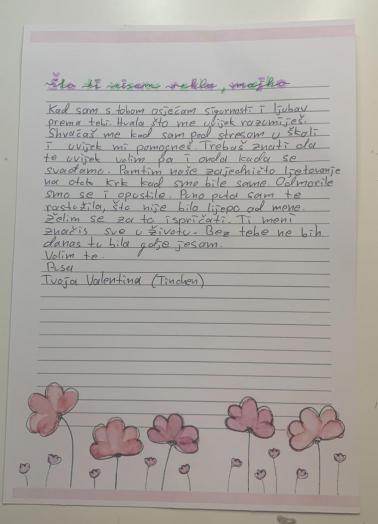 Što ti nisam rekla, majko
Kad sam s tobom osjećam sigurnost i ljubav
prema tebi. Hvala što me uvijek razumiješ.
Shvaćaš me kad sam pod stresom u školi
i uvijek mi pomogneš. Trebaš znati da
te uvijek volim pa i onda kada se
svađamo. Pamtim naše zajedničko ljetovanje
na otok Krk kad smo bile same. Odmorile
smo se i opustile. Puno puta sam te
rastužila, što nije bilo lijepo od mene.
Želim se za to ispričati. Ti meni
značis sve u životu. Bez tebe ne bih
danas tu bila gdje jesam.
Volim te.
Pusa
Tvoja Valentina (Tinchen)